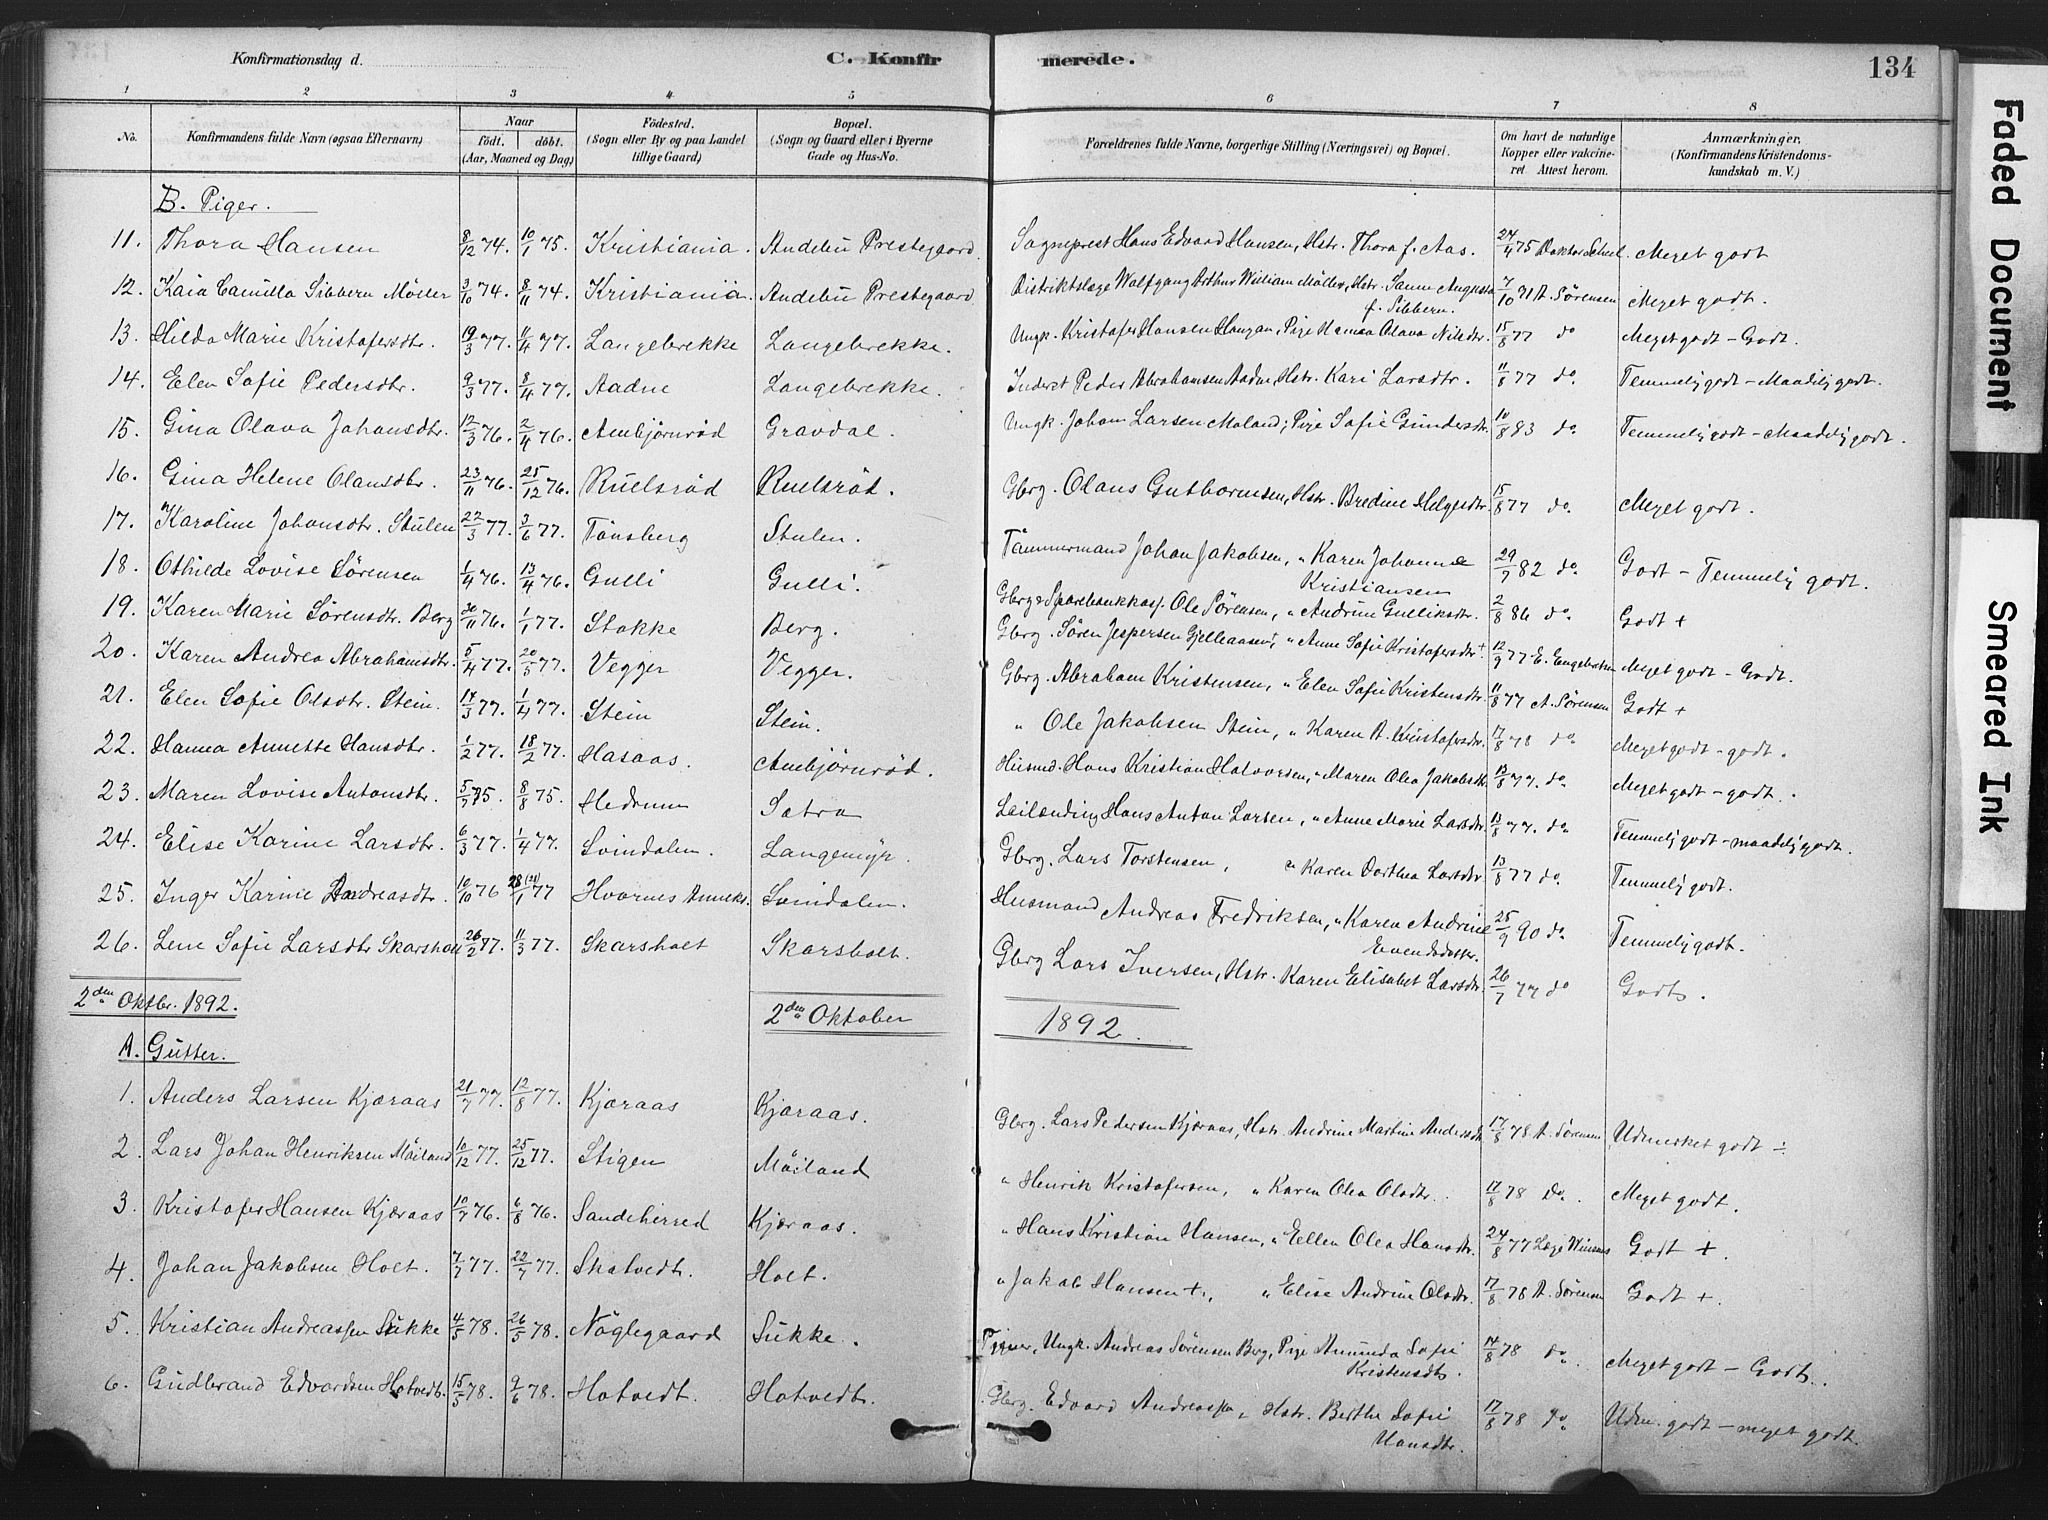 Konfirmationsdag d. C. Konfir merede. 134
1 2 3 4 5 6 7 8
No. Konfirmandens fulde Navn (ogsaa Efternavn) Naar födt. döbt. (Aar, Maaned og Dag) Födested. (Sogn eller By og paa Landet tillige Gaard) Bopæl. (Sogn og Gaard eller i Byerne Gade og Hus-No. Forældrenes fulde Navne, borgerlige Stilling (Næringsvei) og Bopæl. Om havt de naturlige Kopper eller vakcineret Attest herom. Anmærkninger. (Konfirmandens Kristendomskundskab m. V.)
B. Piger.
11. Thora Hansen 8/12 74. 10/1 75. Kristiania. Andebu Prestegaard Sogneprest Hans Edvard Hansen, Hstr. Thora f. Aas. 24/4 75 Doktor Meget godt
12. Kaia Camilla Sibbern Möller 3/10 74. 8/11 74. Kristiania. Andebu Prestegaard Distriktslæge Wolfgang Arthur William Möller, Hstr. Sanne Augusta f. Sibbern. 7/10 91 A. Sørensen Meget godt.
13. Hilda Marie Kristofersdtr. 19/3 77. 11/4 77. Langebrekke Langebrekke. Ungk. Kristofer Hansen Haugan, Pige Hanna Olava Nilsdtr. 15/8 77 do Meget godt – Godt.
14. Elen Sofie Pedersdtr. 9/3 77. 8/4 77. Aadne Langebrekke. Inderst Peder Abrahamsen Aadne, Hstr. Kari Larsdtr. 11/8 77 do. Temmelig godt – Maadelig godt.
15. Gina Olava Johansdtr. 12/3 76. 2/4 76. Ambjörnröd Gravdal. Ungk. Johan Larsen Moland; Pige Sofie Gundersdtr. 10/8 83 do. Temmelig godt – Maadelig godt.
16. Gina Helene Olansdtr. 23/11 76. 25/12 76. Ruelsröd Ruelsröd. Gbrg. Olaus Guthormsen, Hstr. Bredine Helgesdtr. 15/8 77 do. Meget godt.
17. Karoline Johansdtr. Stulen 22/3 77. 3/6 77. Tönsberg Stulen. Tömmermand Johan Jakobsen, " Karen Johanne Kristiansen 29/7 82 do. Godt – Temmelig godt.
18. Othilde Lovise Sörensen 1/4 76. 13/4 76. Gulli Gulli. Gbrg. & Sparebankkass. Ole Sörensen, " Andrine Gulliksdtr. 2/8 86 do. Godt +
19. Karen Marie Sörensdtr. Berg 30/11 76. 1/1 77. Stokke Berg. Gbrg. Sören Jespersen Gjelhaasen, " Anne Sofie Kristofersdtr +. 12/9 77 E. Engebretsen Meget godt – Godt.
20. Karen Andrea Abrahamsdtr. 5/4 77. 20/5 77. Vegger Vegger. Gbrg. Abraham Kristensen, " Elen Sofie Kristensdtr. 11/8 77 A. Sørensen Godt +
21. Elen Sofie Olsdtr. Stein. 14/3 77. 1/4 77. Stein Stein. " Ole Jakobsen Stein, " Karen A. Kristofersdtr. 17/8 78 do. Meget godt – godt.
22. Hanna Annette Hansdtr. 1/2 77. 18/2 77. Hasaas. Ambjörnröd. Husmd. Hans Kristian Halvorsen, " Maren Olea Jakobsdtr. 13/8 77. do. Meget godt – godt.
23. Maren Lovise Antonsdtr. 5/7 75. 8/8 75. Hedrum Satra Leilending Hans Anton Larsen, " Anne Marie Larsdtr. 13/8 77. do. Temmelig godt – maadelig godt.
24. Elise Karine Larsdtr. 6/3 77. 1/4 77. Svindalen. Langemyr. Gbrg. Lars Torstensen, " Karen Dorthea Larsdtr. 13/8 77 do. Temmelig godt.
25. Inger Karine Andreasdtr. 10/10 76 28 (21)/1 77 Hvarnes Anneks. Svindalen. Husmand Andreas Fredriksen, " Karen Andrine Evensdatter. 25/9 90 do. Temmelig godt.
26. Lene Sofie Larsdtr Skarsholt 26/2 77. 11/3 77. Skarsholt Skarsholt. Gbrg Lars Iversen, Hstr. Karen Elisabet Larsdtr. 26/7 77 do Godt.
2den Oktbr. 1892. 2den Oktober 1892.
A. Gutter.
1. Anders Larsen Kjæraas 21/7 77. 12/8 77. Kjæraas Kjæraas. Gbrg. Lars Pedersen Kjæraas, Hstr. Andrine Martine Andersdtr 17/8 78 A. Sørensen Udmerket godt ÷
2. Lars Johan Henriksen Möiland 10/12 77. 25/12 77. Stigen Möiland " Henrik Kristofersen, " Karen Olea Olsdtr. 17/8 78 do. Meget godt.
3. Kristofer Hansen Kjæraas 10/7 76. 6/8 76. Sandeherred Kjæraas. " Hans Kristian Hansen, " Ellen Olea Hansdtr. 24/8 77 Læge Godt +.
4. Johan Jakobsen Holt. 7/7 77. 22/7 77. Skatvedt. Holt. " Jakob Hansen +, " Elise Andrine Olsdtr. 17/8 78 A. Sørensen Godt +.
5. Kristian Andreassen Sukke 4/5 78. 26/5 78. Nöglegaard Sukke. Tjener, Ungk. Andreas Sörensen Berg, Pige Amunda Sofie Kristensdtr. 14/8 78 do. Meget godt – Godt.
6. Gudbrand Edvardsen Hotvedt. 15/5 78. 9/6 78. Hotvedt. Hotvedt. Gbrg. Edvard Andreassen, Hstr. Berthe Sofie Hansdtr. 17/8 78 do. Udm. godt – meget godt.
Faded Document
Smeared Ink